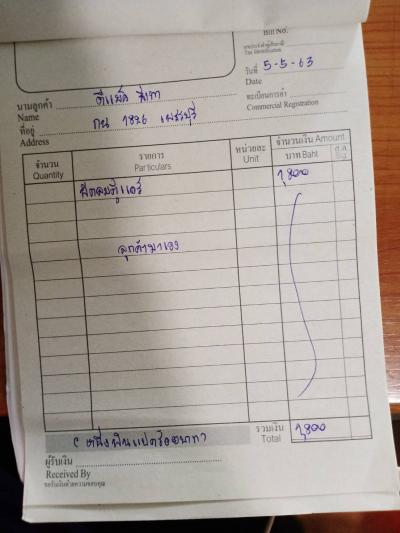 Bill No.
เลขประจำตัวผู้เสียภาษี
Tax Identification
วันที่ 5-5-63
Date
นามลูกค้า
Name
ทะเบียนการค้า
Commercial Registration
ที่อยู่ กบ 1826 เพชรบุรี
Address
จำนวน
Quantity
รายการ
Particulars
หน่วยละ
Unit
จำนวนเงิน Amount
บาท Baht
ส.ต.
Stg.
1,800
ลูกค้ามาเอง
(หนึ่งพันแปดร้อยบาท)
รวมเงิน
Total
1,800
ผู้รับเงิน
Received By
ขอรับเงินด้วยความขอบคุณ